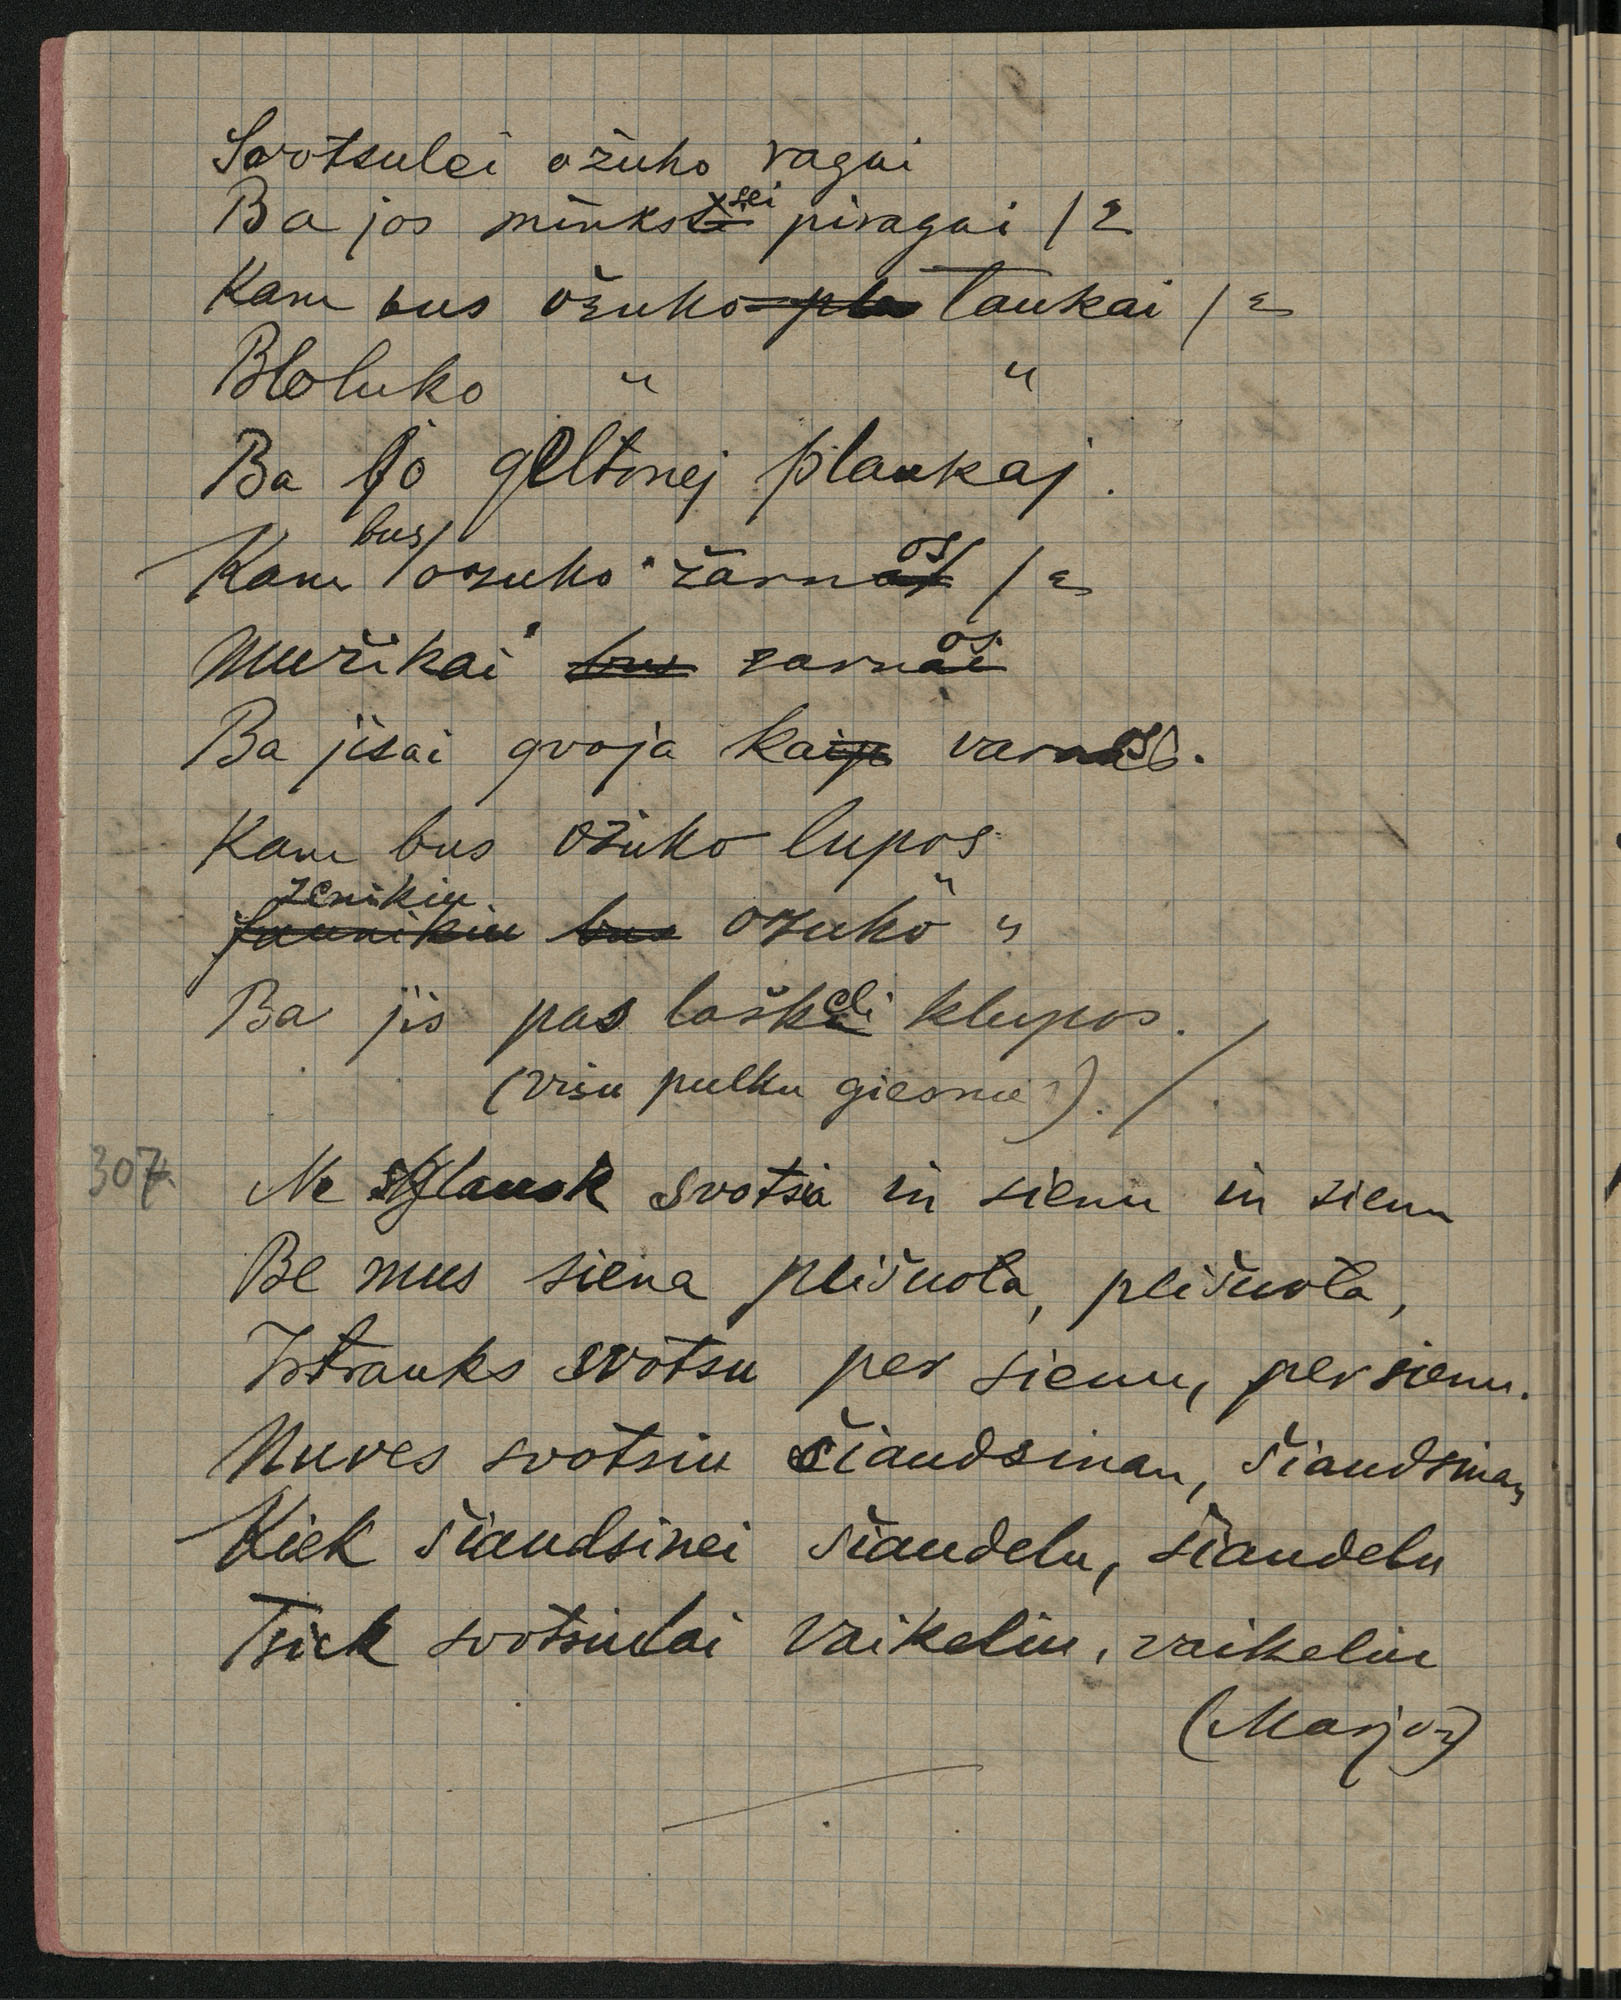 Svotsulei ožuko ragai
Ba jos minkštsei piragai /2
Kam bus ožuko taukai /2
Bloluko " "
Ba jo geltonej plaukaj.
Kam bus ozuko žarnos /2
Muzikai zarnos
Ba jisai groja ka varnos.
Kam bus ožuko lupos
zenikiu ozuko "
Ba jis pas laškeli klupos.
(visu pulku giesme)./
307. Ne slauk svotsia in sienu in sienu
Be mus siena plišuota, plišuota,
Istrauks svotsu per sienu, per sienu.
Nuves svotsiu šiaudsinan, šiaudsinan
Kiek šiaudsinei šiaudelu, šiaudelu
Tsiek svotsiulai vaikeliu, vaikeliu